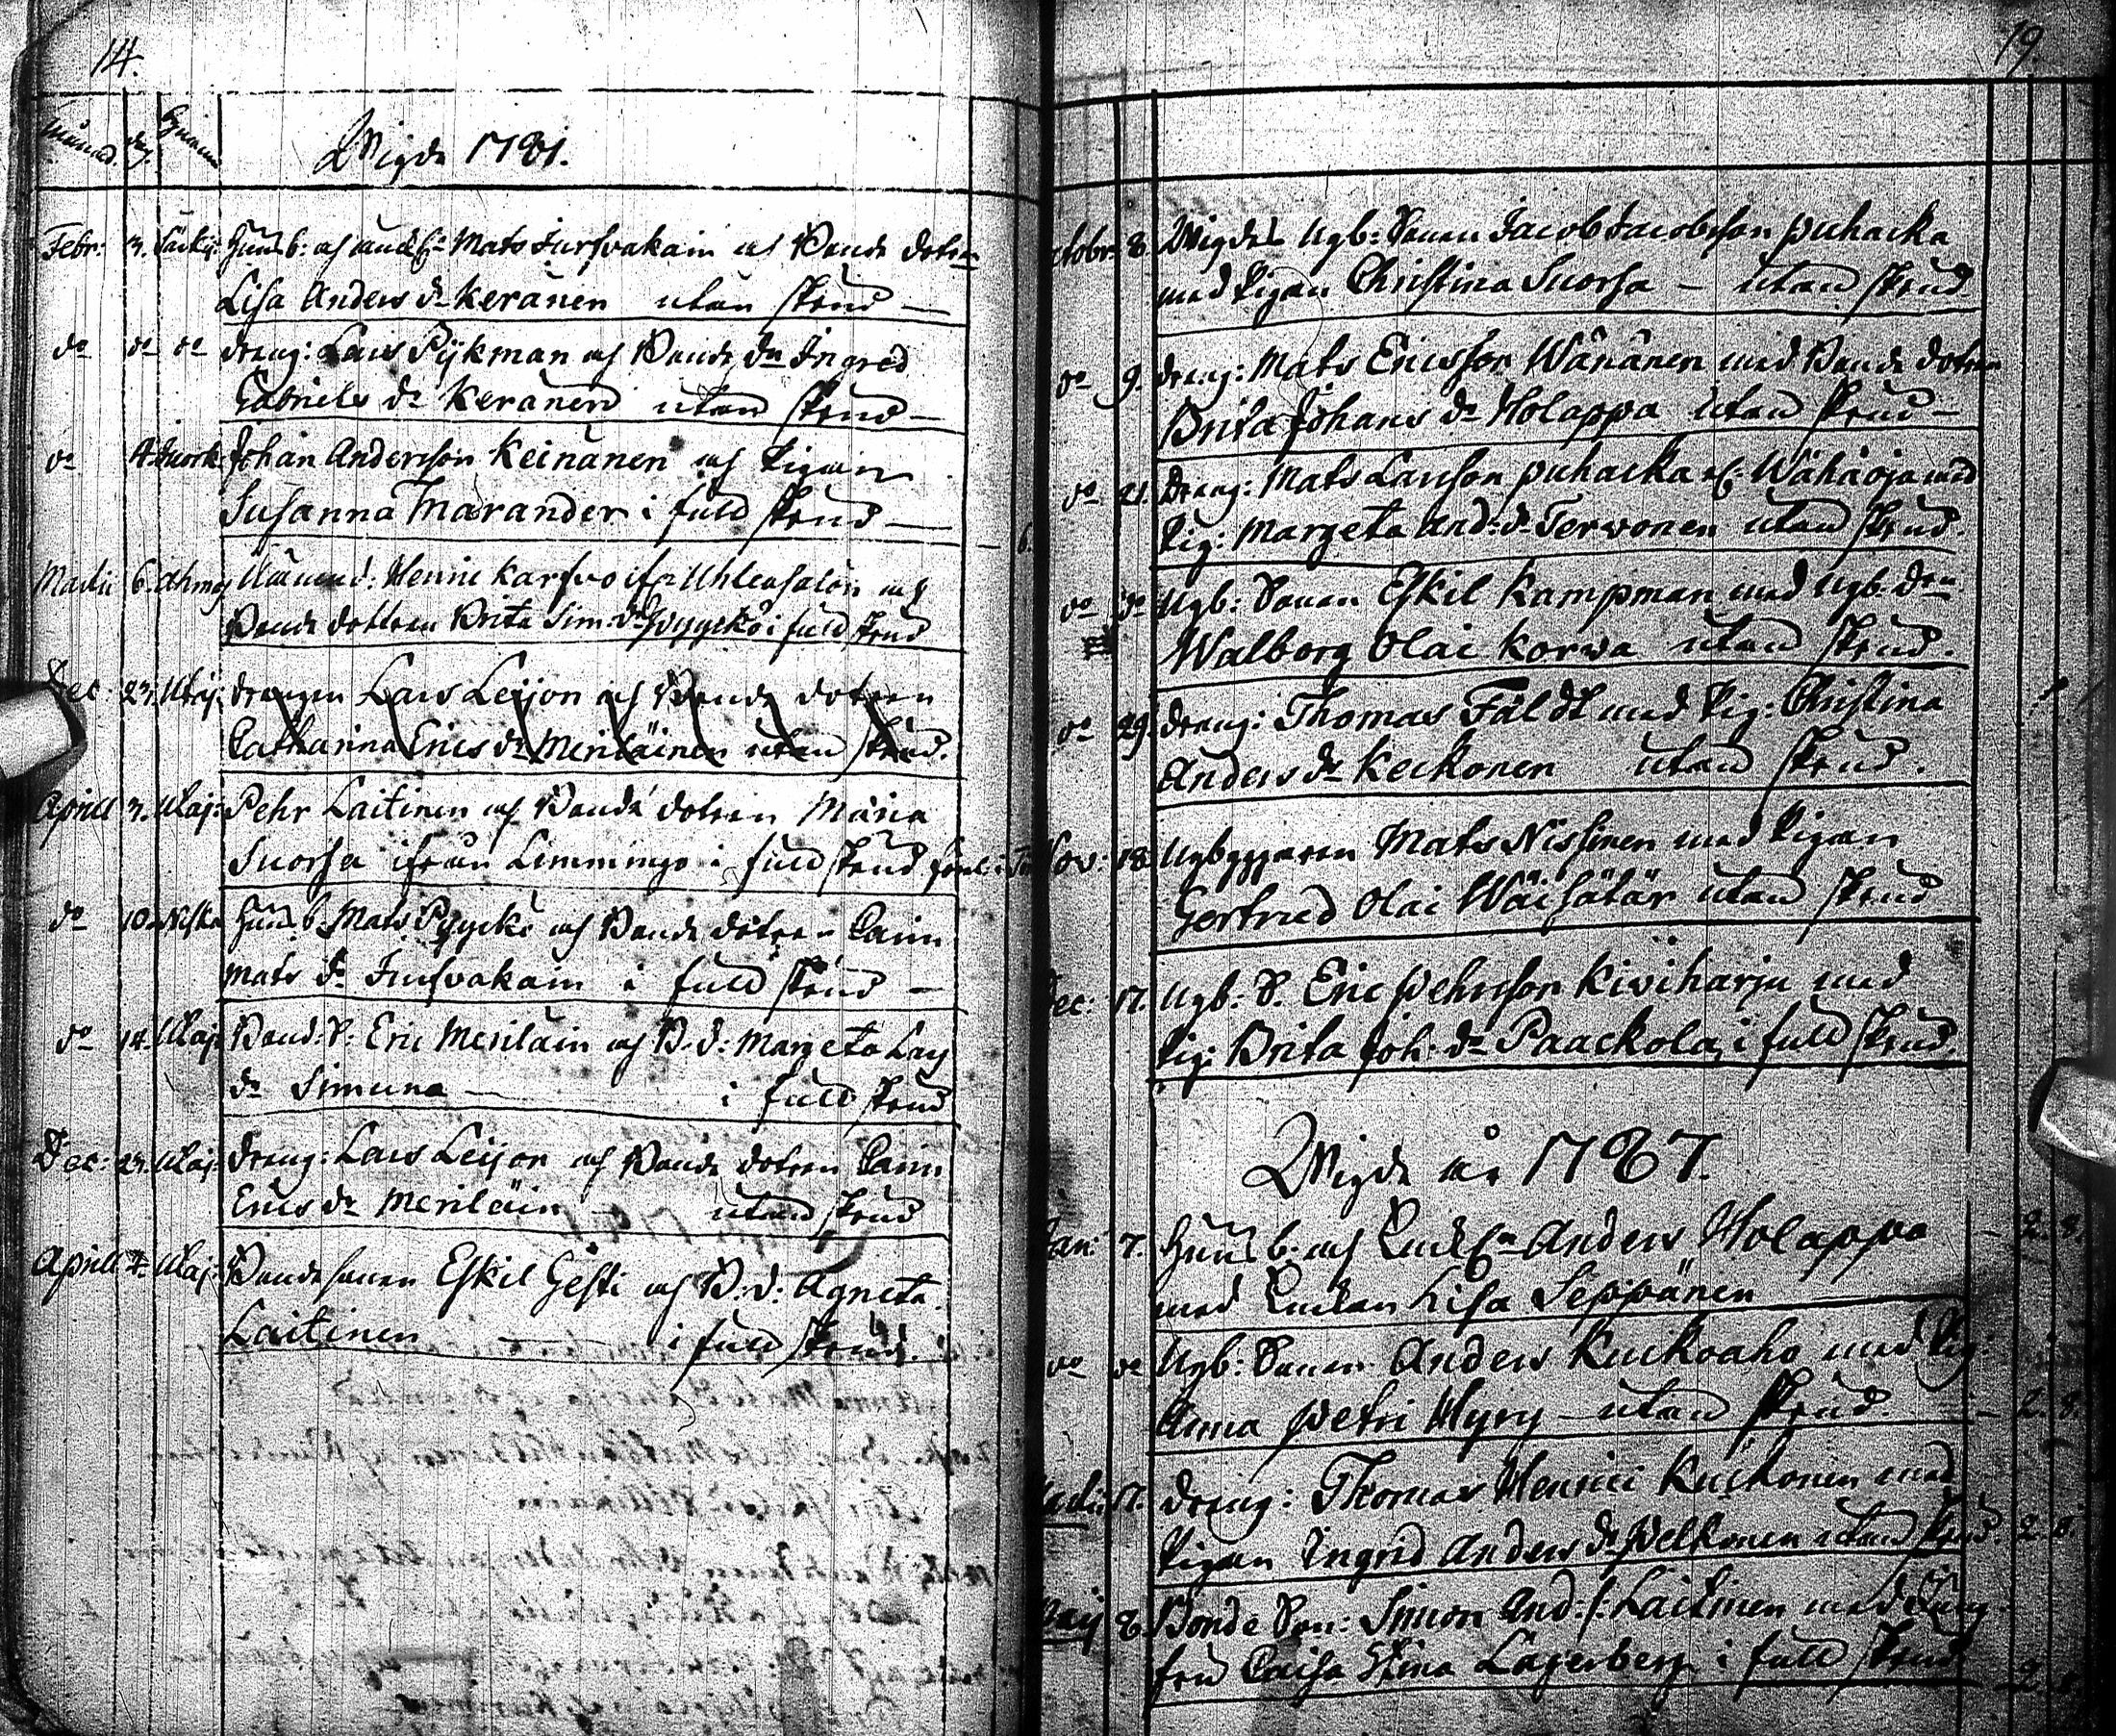 14.
Månad. dag. Hemman
Wigde 1781.
Febr: 3. Särkij: Husb: och Enkl: Mats Jursvakain och Bonde dotren
Lisa Anders dr Keränen utan skrud
do do do dreng: Lars Pykman och Bonde dn Ingred
Gabriels dr Keränen utan skrud
do 4. Johan Andersson Keinänen och Pigan
Susanna Marander i full skrud
Martii 6. Ahmas Henric Karfvo ifr: Uhleasalon och
Bonde dottren Brita Sim: dr Pyyckö i full skrud
Dec: 23. Utaj: drengen Lars Leijon och Bonde dotren
Catharina Erics dr Meriläinen utan skrud.
Aprill 3. Utaj: Pehr Laitinen och Bonde dotren Maria
Suorsa ifrån Limmingo i full skrud
do 10. Niska Husb. Mats Pyyckö och Bonde dotren Carin
Mats dr Jursvakain i full skrud
do 14. Utaj: Bond: S: Eric Meriläin och B. d: Margeta Lars
dr Simuna i full skrud
Dec: 23. Utaj: dreng: Lars Leijon och Bonde dotren Carin
Erics dr Meriläin utan skrud
Aprill Utaj: Bondesonen Eskil Gesti och B: d: Agneta
Laitinen i full skrud.
19
October 8. Wigdes Nyb: Sonen Jacob Jacobsson Puhacka
med Pigan Christina Suorsa – utan skrud
do 9. dreng: Mats Ericsson Wänänen med Bonde dotren
Brita Johans dr Holappa utan skrud
do 21. Dreng: Mats Larsson Puhacka Wähäoja med
Pig: Margeta And: d: Terwonen utan skrud.
do do Nyb: Sonen Eskil Kampman med Nyb: dn
Walborg Olai Korwa utan skrud.
do 29. dreng: Thomas Fäldt med Pig: Christina
Anders dr Keckonen utan skrud.
Nov: 18. Nybyggaren Mats Nissinen med Pigan
Gertrud Olai Wäisätär utan skrud
Dec: 17. Nyb: S. Eric Pehrsson Kiviharju med
Pig: Brita Joh: dr Paackola i full skrud.
Wigde år 1787.
Jan: 7. Husb. och Enkl: Anders Holappa – 2. 8.
med Enkan Lisa Seppänen
do do Nyb: Sonen Anders Kuckoaho med Pig:
Anna Petri Hyry – utan skrud. – 2. 8.
Martii 17. dreng: Thomas Henrici Kuckonen med
Pigan Ingrid Anders dr Pelkonen utan skrud. 2. 8.
Maij 8. Bonde Son: Simon And: s: Laitinen med Jung
fru Caisa Stina Lagerberg i full skrud 2. 8.